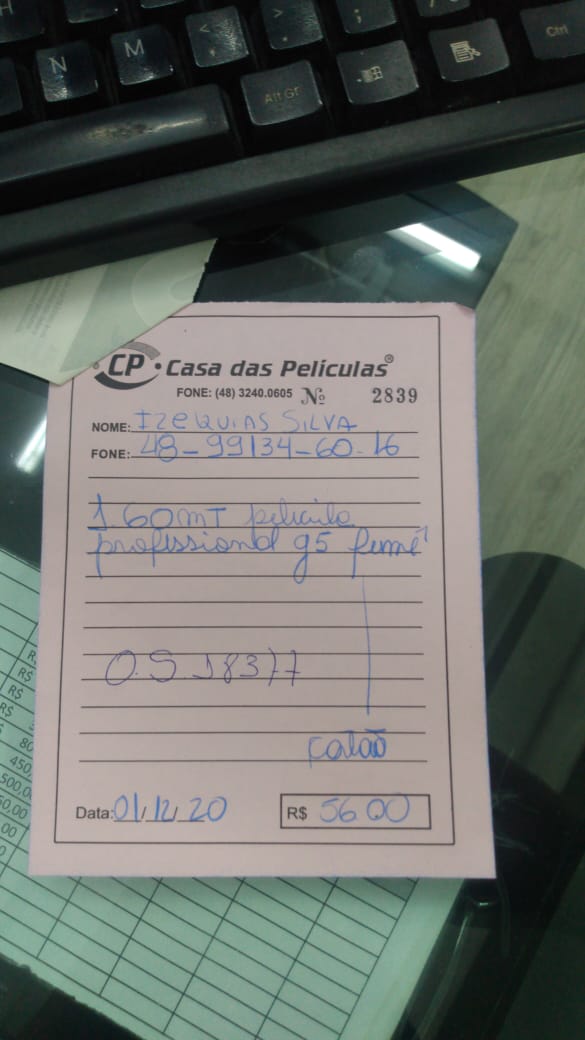 N
M
Alt Gr
Ctrl
CP
Casa das Películas®
FONE: (48) 3240.0605 Nº 2839
NOME: IZEQUIAS SILVA
FONE: 48-99134-60-16
1.60mT pelicula
profissional g5 fumê
O.S 18377
Data: 01/12/20 R$ 56 00
R$
R$
R$